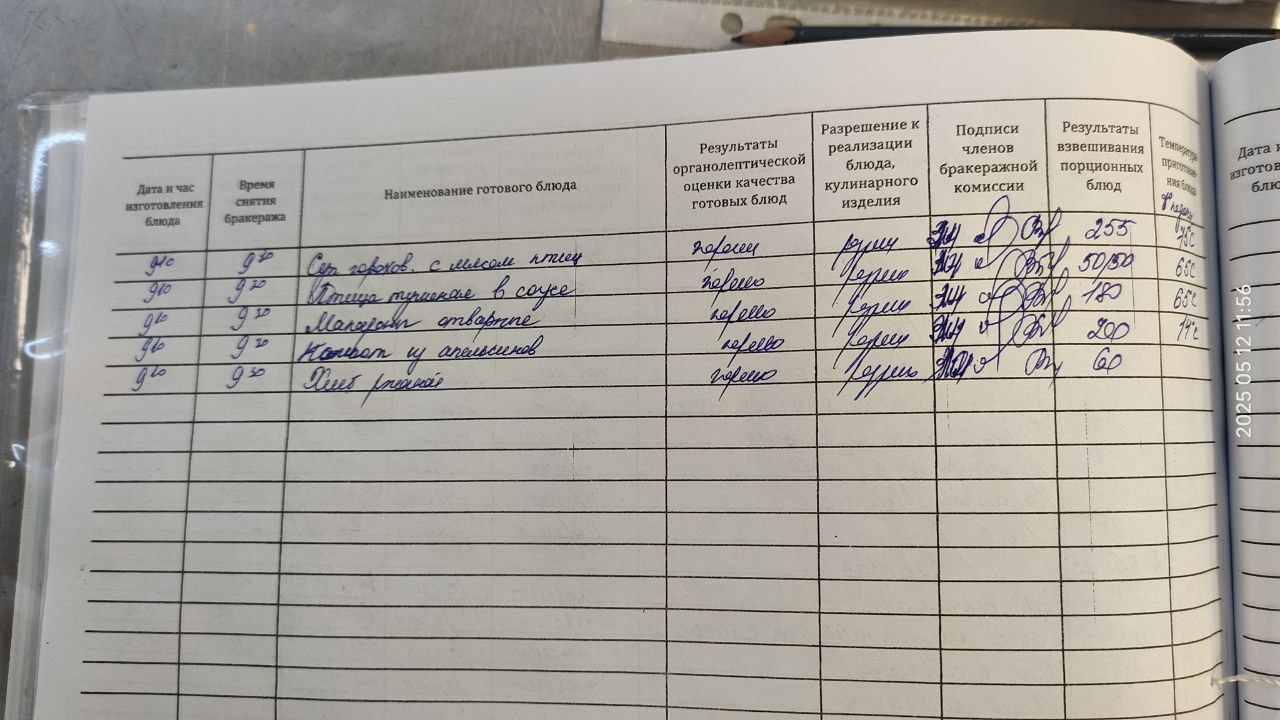 Дата и час изготовления блюда
Время снятия бракеража
Наименование готового блюда
Результаты органолептической оценки качества готовых блюд
Разрешение к реализации блюда, кулинарного изделия
Подписи членов бракеражной комиссии
Результаты взвешивания порционных блюд
Температура
9 30 Суп горохов. с мясом птиц хорошо 255 75С
9 30 Птица тушеная в соусе хорошо 50/50 65С
9 30 Макароны отварные хорошо 180 65С
9 30 Компот из апельсинов хорошо 200 14С
9 30 Хлеб ржаной хорошо 60
2025 05 12 11:56
Дата и
изготов
блю